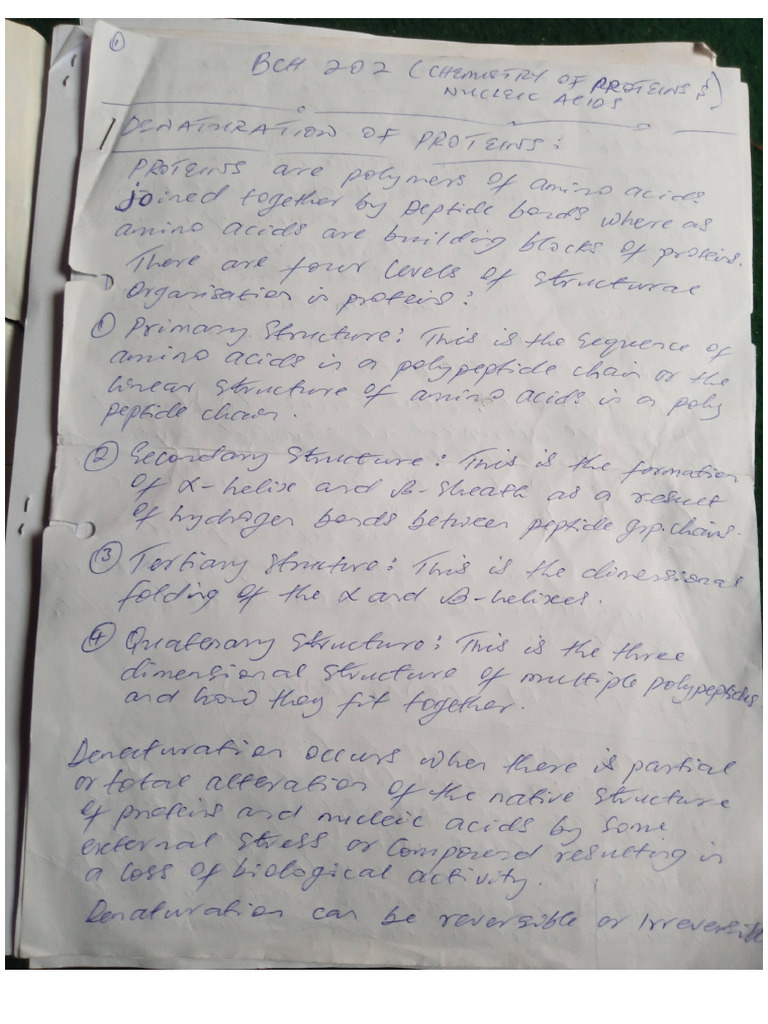 1
BCH 202 (CHEMISTRY OF PROTEINS &
NUCLEIC ACIDS)
DENATURATION OF PROTEINS:
PROTEINS are polymers of amino acids
joined together by peptide bonds where as
amino acids are building blocks of protein.
There are four levels of structural
Organisation in protein:
① Primary Structure: This is the sequence of
amino acids in a polypeptide chain or the
linear structure of amino acids in a poly
peptide chain.
② Secondary Structure: This is the formation
of α-helix and β-sheath as a result
of hydrogen bonds between peptide grp. chains.
③ Tertiary Structure: This is the dimensional
folding of the α and β-helixes.
④ Quaternary Structure: This is the three
dimensional structure of multiple polypeptides
and how they fit together.
Denaturation occurs when there is partial
or total alteration of the native structure
of proteins and nucleic acids by some
external stress or compound resulting in
a loss of biological activity.
Denaturation can be reversible or Irreversible